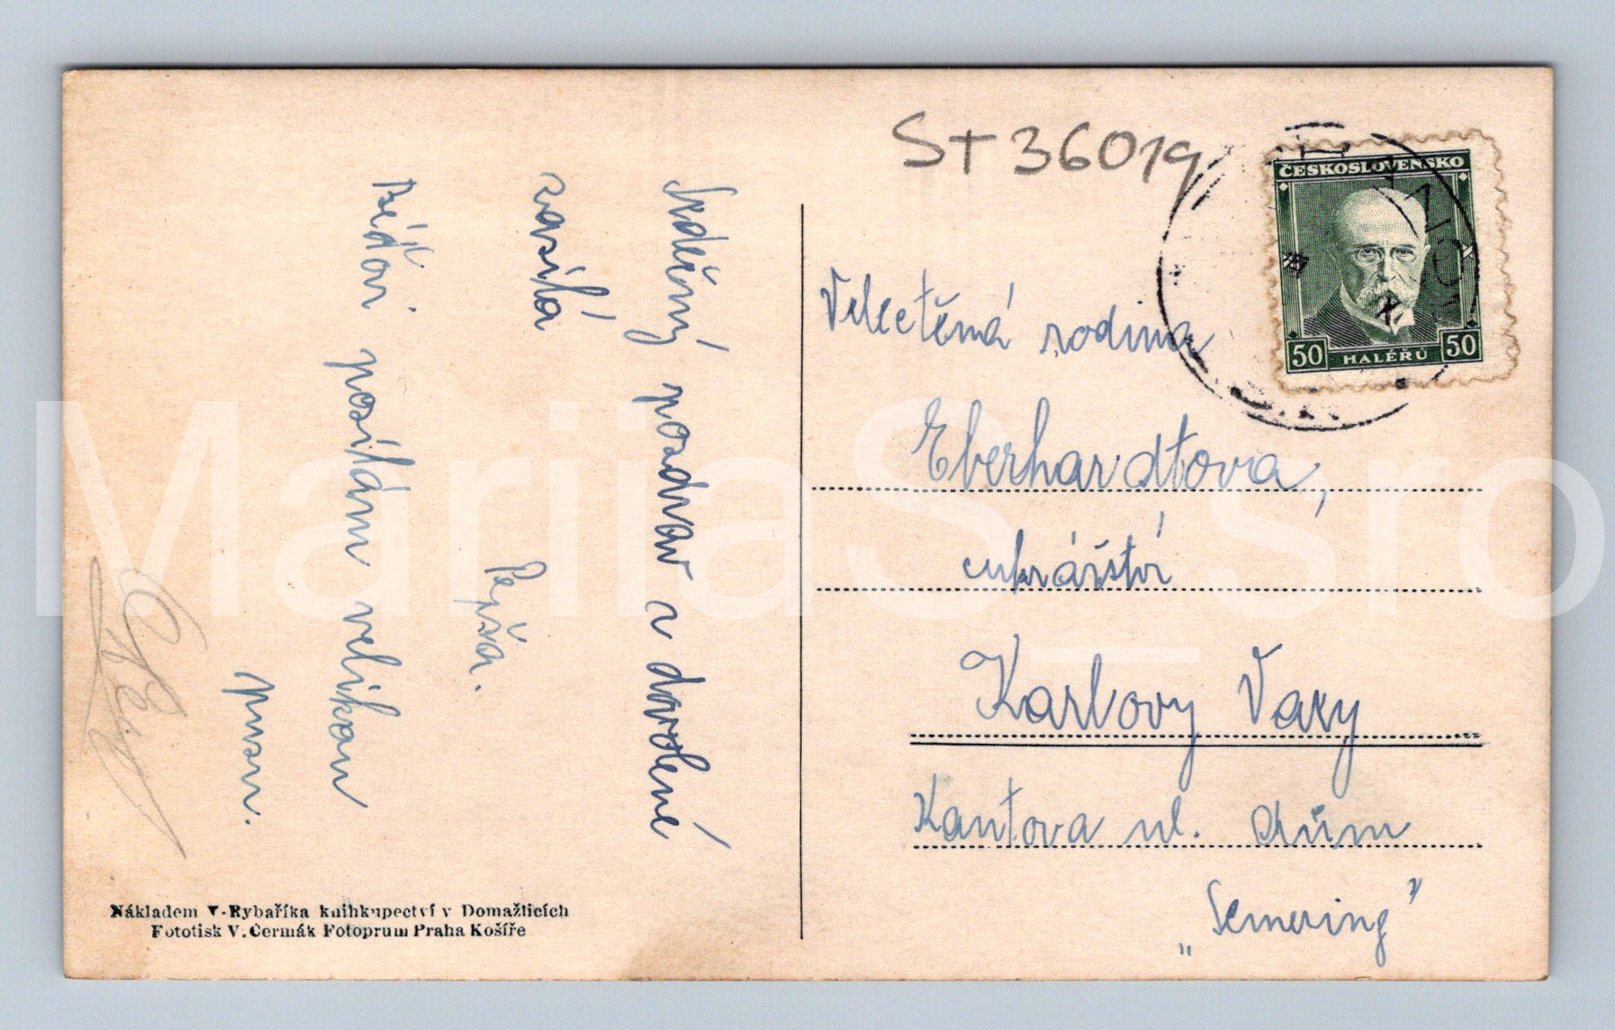 ST 36019
ČESKOSLOVENSKO
50 HALÉŘŮ 50
Srdečný pozdrav z dovolené
zasílá
Pepša.
Béďovi posílám velikou
pusu.
Velectěná rodina
Eberhardtova,
cukrářství
Karlovy Vary
Kantova ul. dům
„Semering"
Nákladem V. Rybaříka knihkupectví v Domažlicích
Fototisk V. Čermák Fotoprum Praha Košíře
MarijaS_sro